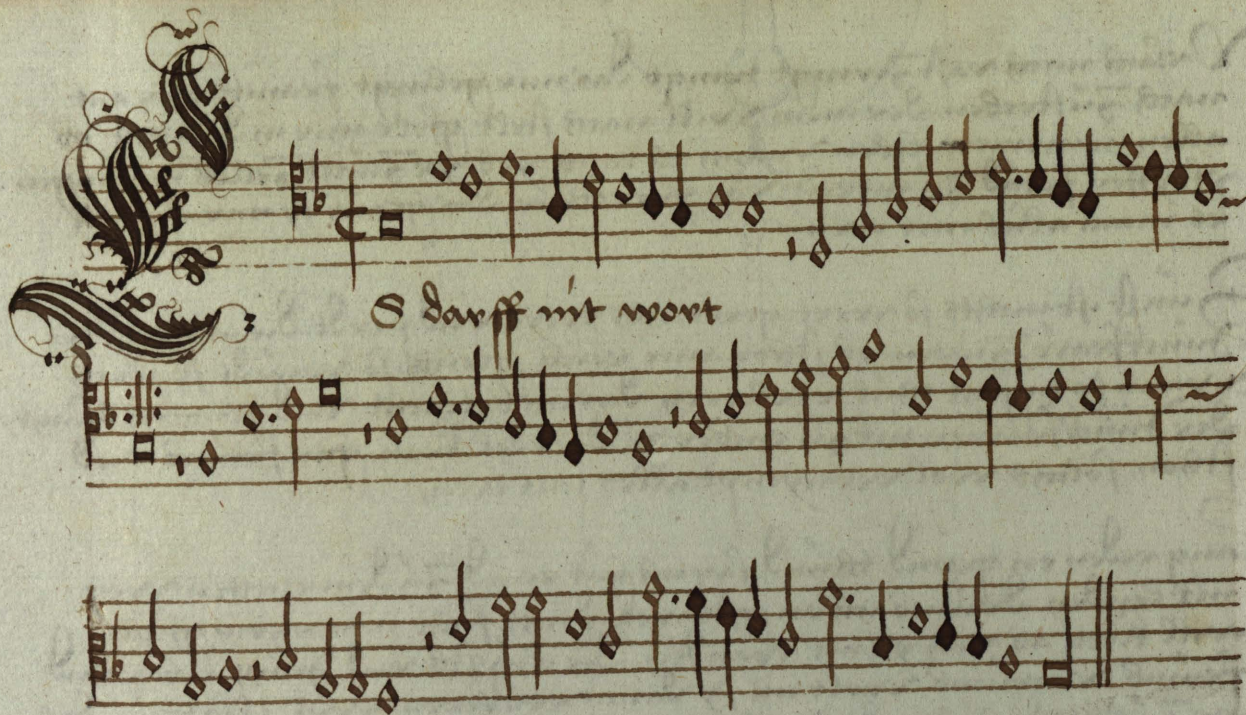 ES darff nit wort